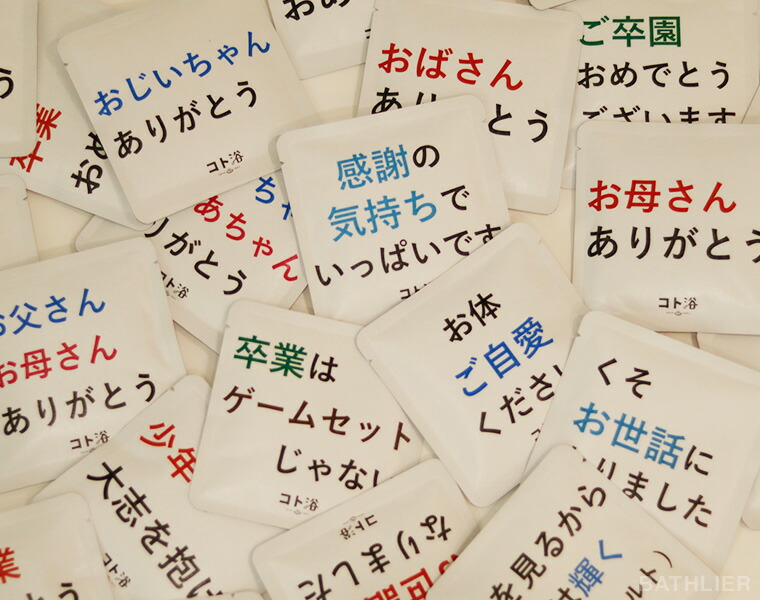 おじいちゃん
ありがとう
コト浴
おばさん
とう
ご卒園
おめでとう
ございます
卒業
おめ
感謝の
気持ちで
いっぱいです
お母さん
ありがとう
コト浴
あちゃん
りがとう
コト浴
お父さん
お母さん
ありがとう
コト浴
卒業は
ゲームセット
じゃない
コト浴
お体
ご自愛
ください
くそ
お世話に
りました
少年
大志を抱い
コト浴
なりました
コト浴
を見るから
輝く
BATHLIER